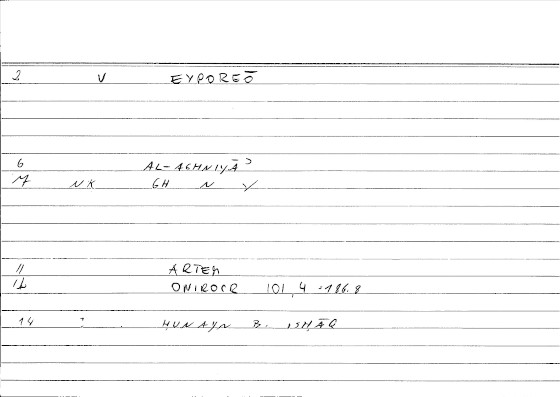 3 V EYPOREŌ
6 AL-AGHNIYĀʾ
7 NK GH N Y
11 ARTEM
12 ONIROCR 101,4 - 186.8
14 : . HUNAYN B. ISḤĀQ